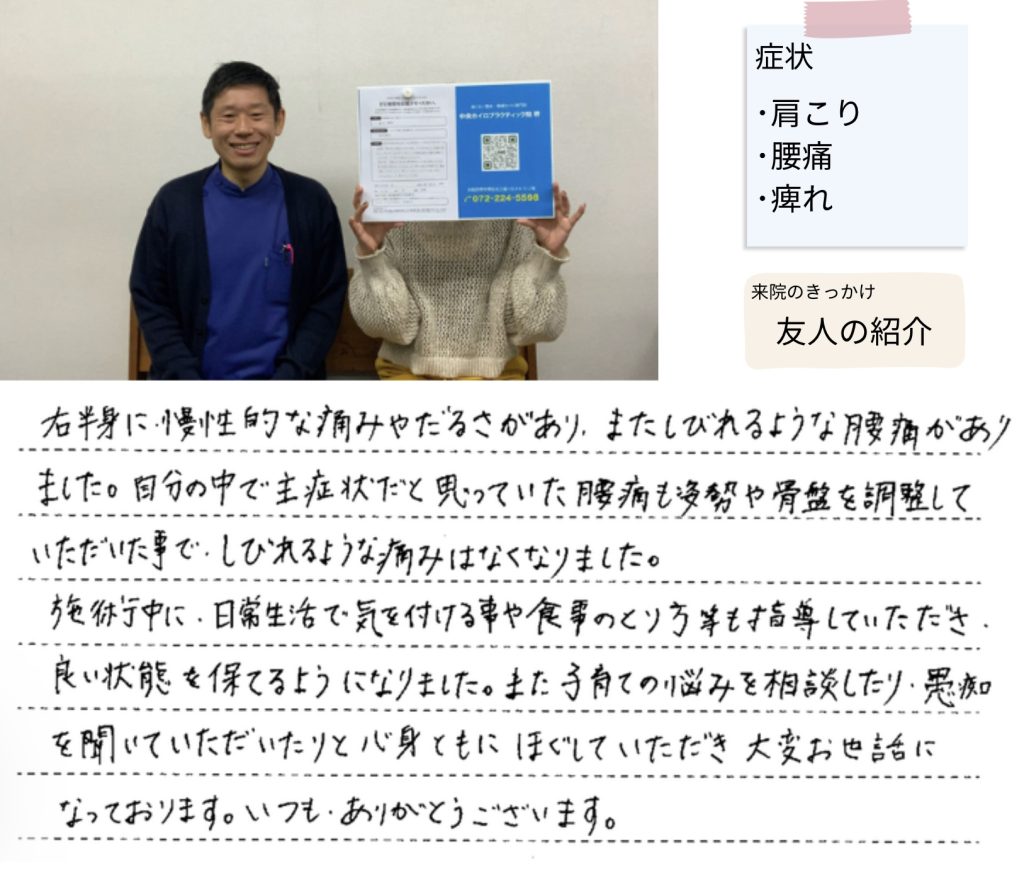 症状
・肩こり
・腰痛
・痺れ
来院のきっかけ
友人の紹介
中央カイロプラクティック院 堺
072-224-5598
右半身に、慢性的な痛みやだるさがあり、またしびれるような腰痛があり
ました。自分の中で主症状だと思っていた腰痛も姿勢や骨盤を調整して
いただいた事で、しびれるような痛みはなくなりました。
施術中に、日常生活で気を付ける事や食事のとり方等も指導していただき、
良い状態を保てるようになりました。また子育ての悩みを相談したり、愚痴
を聞いていただいたりと心身ともにほぐしていただき大変お世話に
なっております。いつも、ありがとうございます。